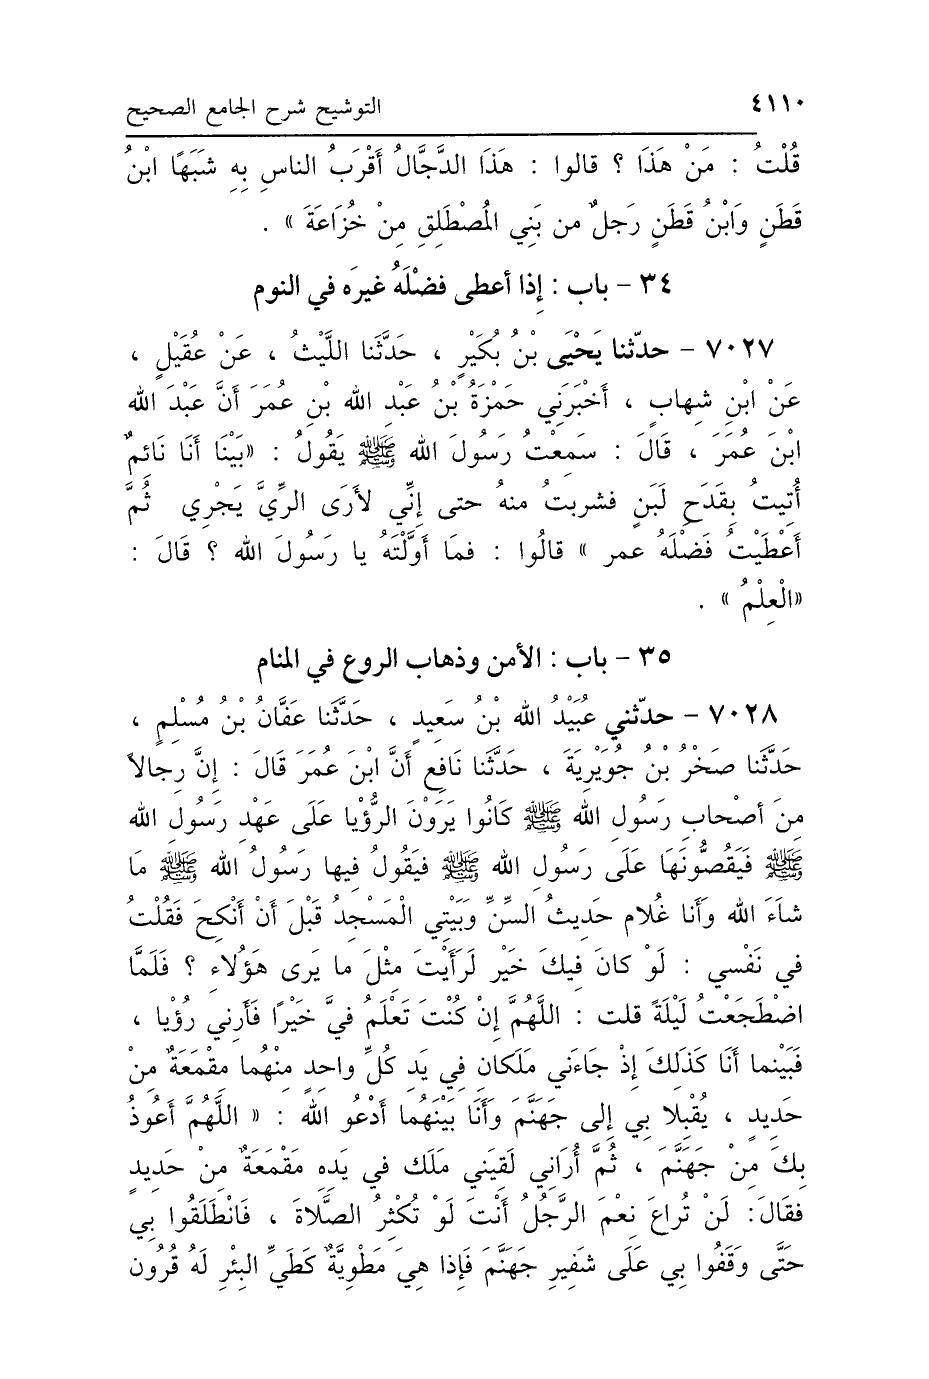 ٤١١٠ التوشيح شرح الجامع الصحيح
قُلْتُ : مَنْ هَذَا ؟ قالوا : هَذَا الدَّجَّالُ أَقْرَبُ الناسِ بِهِ شَبَهًا ابْنُ
قَطَنٍ وَابْنُ قَطَنٍ رَجلٌ من بَنِي الْمُصْطَلِقِ مِنْ خُزَاعَةَ » .
٣٤ - باب : إذا أعطى فضْلَهُ غيرَه في النوم
٧٠٢٧ - حدّثنا يَحْيَى بْنُ بُكَيْرٍ ، حَدَّثَنا اللَّيْثُ ، عَنْ عُقَيْلٍ ،
عَنْ ابْنِ شِهابٍ ، أَخْبَرَنِي حَمْزَةُ بْنُ عَبْدِ الله بْنِ عُمَرَ أَنَّ عَبْدَ الله
ابْنَ عُمَرَ ، قَالَ : سَمِعْتُ رَسُولَ الله ﷺ يَقُولُ : «بَيْنَا أَنَا نَائِمٌ
أُتِيتُ بِقَدَحِ لَبَنٍ فشربتُ منهُ حتى إنِّي لأَرَى الرِّيَّ يَجْرِي ثُمَّ
أَعْطَيْتُ فَضْلَهُ عمر » قالُوا : فمَا أَوَّلْتَهُ يا رَسُولَ الله ؟ قَالَ :
«الْعِلْمُ » .
٣٥ - باب : الأمن وذهاب الروع في المنام
٧٠٢٨ - حدّثني عُبَيْدُ الله بْنُ سَعِيدٍ ، حَدَّثَنا عَفَّانُ بْنُ مُسْلِمٍ ،
حَدَّثَنا صَخْرُ بْنُ جُوَيْرِيَةَ ، حَدَّثَنا نَافِع أَنَّ ابْنَ عُمَرَ قَالَ : إنَّ رِجالاً
مِنَ أصْحابِ رَسُولِ الله ﷺ كَانُوا يَرَوْنَ الرُّؤْيا عَلَى عَهْدِ رَسُولِ الله
ﷺ فَيَقُصُّونَهَا عَلَى رَسُولِ الله ﷺ فيَقُولُ فِيها رَسُولُ الله ﷺ مَا
شاءَ الله وأَنا غُلام حَدِيثُ السِّنِّ وَبَيْتِي الْمَسْجِدُ قَبْلَ أَنْ أَنْكِحَ فَقُلْتُ
في نَفْسِي : لَوْ كانَ فِيكَ خَيْر لَرَأَيْتَ مِثْلَ ما يَرى هَؤُلاءِ ؟ فَلَمَّا
اضْطَجَعْتُ لَيْلَةً قلت : اللَّهُمَّ إنْ كُنْتَ تَعْلَمُ فيَّ خَيْرًا فَأَرِني رُؤْيا ،
فَبَيْنما أَنَا كَذَلِكَ إذْ جاءَني مَلَكانِ فِي يَدِ كُلِّ واحِدٍ مِنْهُما مِقْمَعَةٌ مِنْ
حَدِيدٍ ، يُقْبِلا بي إِلى جَهَنَّمَ وَأَنا بَيْنَهُما أَدْعُو الله : « اللَّهُمَّ أَعُوذُ
بِكَ مِنْ جَهَنَّمَ ، ثُمَّ أُرَانِي لَقِيَني مَلَك في يَدِهِ مِقْمَعَةٌ مِنْ حَدِيدٍ
فقَالَ: لَنْ تُراعَ نِعْمَ الرَّجُلُ أَنْتَ لَوْ تُكْثِرُ الصَّلاةَ ، فَانْطَلَقُوا بِي
حَتَّى وَقَفُوا بِي عَلَى شَفِيرِ جَهَنَّمَ فَإذا هِيَ مَطْوِيَّةٌ كَطَيِّ البِئْرِ لَهُ قُرُون